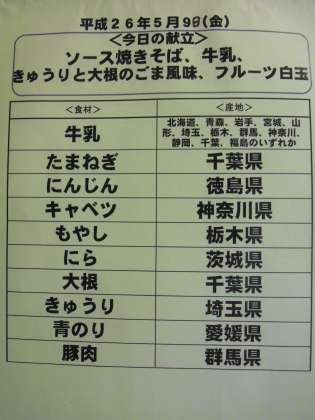 平成２６年５月９日(金)
＜今日の献立＞
ソース焼きそば、牛乳、
きゅうりと大根のごま風味、フルーツ白玉
＜食材＞ ＜産地＞
牛乳 北海道、青森、岩手、宮城、山
形、埼玉、栃木、群馬、神奈川、
静岡、千葉、福島のいずれか
たまねぎ 千葉県
にんじん 徳島県
キャベツ 神奈川県
もやし 栃木県
にら 茨城県
大根 千葉県
きゅうり 埼玉県
青のり 愛媛県
豚肉 群馬県